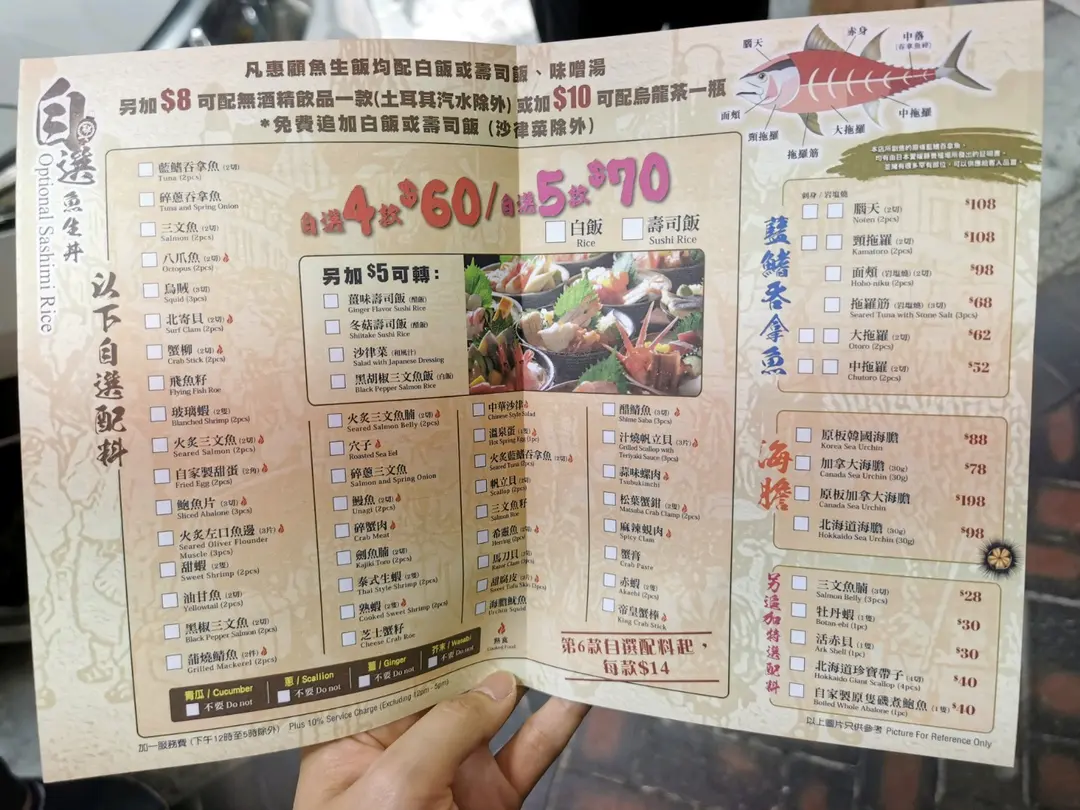 自選魚生丼
Optional Sashimi Rice
以下自選配料
凡惠顧魚生飯均配白飯或壽司飯、味噌湯
另加$8可配無酒精飲品一款(土耳其汽水除外) 或加$10可配烏龍茶一瓶
*免費追加白飯或壽司飯 (沙律菜除外)
自選4款$60/自選5款$70
白飯
Rice
壽司飯
Sushi Rice
藍鰭吞拿魚 (2切)
Tuna (2pcs)
碎蔥吞拿魚
Tuna and Spring Onion
三文魚 (2切)
Salmon (2pcs)
八爪魚 (2切)
Octopus (2pcs)
烏賊 (3切)
Squid (3pcs)
北寄貝 (2切)
Surf Clam (2pcs)
蟹柳 (2切)
Crab Stick (2pcs)
飛魚籽
Flying Fish Roe
玻璃蝦 (2隻)
Blanched Shrimp (2pcs)
火炙三文魚 (2切)
Seared Salmon (2pcs)
自家製甜蛋 (2角)
Fried Egg (2pcs)
鮑魚片 (3切)
Sliced Abalone (3pcs)
火炙左口魚邊 (3片)
Seared Oliver Flounder
Muscle (3pcs)
甜蝦 (2隻)
Sweet Shrimp (2pcs)
油甘魚 (2切)
Yellowtail (2pcs)
黑椒三文魚 (2切)
Black Pepper Salmon (2pcs)
蒲燒鯖魚 (2件)
Grilled Mackerel (2pcs)
另加$5可轉：
薑味壽司飯 (醋飯)
Ginger Flavor Sushi Rice
冬菇壽司飯 (醋飯)
Shiitake Sushi Rice
沙律菜 (和風汁)
Salad with Japanese Dressing
黑胡椒三文魚飯 (白飯)
Black Pepper Salmon Rice
火炙三文魚腩 (2切)
Seared Salmon Belly (2pcs)
穴子
Roasted Sea Eel
碎蔥三文魚
Salmon and Spring Onion
鰻魚 (2切)
Unagi (2pcs)
碎蟹肉
Crab Meat
劍魚腩 (2切)
Kajiki Toro (2pcs)
泰式生蝦 (2隻)
Thai Style Shrimp (2pcs)
熟蝦 (2隻)
Cooked Sweet Shrimp (2pcs)
芝士蟹籽
Cheese Crab Roe
中華沙律
Chinese Style Salad
溫泉蛋 (1隻)
Hot Spring Egg (1pc)
火炙藍鰭吞拿魚 (2切)
Seared Tuna (2pcs)
帆立貝 (2切)
Scallop (2pcs)
三文魚籽
Salmon Roe
希靈魚 (2切)
Herring (2pcs)
馬刀貝
Razor Clam
甜腐皮
Sweet Tofu Skin
海膽魷魚
Urchin Squid
熟食
Cooked Food
醋鯖魚 (3切)
Shime Saba (3pcs)
汁燒帆立貝 (3片)
Grilled Scallop with
Teriyaki Sauce (3pcs)
蒜味螺肉
Tsubukimchi
松葉蟹鉗 (2隻)
Matsuba Crab Clamp (2pcs)
麻辣蜆肉
Spicy Clam
蟹膏
Crab Paste
赤蝦 (2隻)
Akaebi (2pcs)
帝皇蟹棒
King Crab Stick
第6款自選配料起，
每款$14
青瓜 / Cucumber
不要 Do not
蔥 / Scallion
不要 Do not
薑 / Ginger
不要 Do not
芥末 / Wasabi
不要 Do not
加一服務費 (下午12時至5時除外) Plus 10% Service Charge (Excluding 12pm - 5pm)
腦天
赤身
中落
面頰
頸拖羅
拖羅筋
大拖羅
中拖羅
藍鰭吞拿魚
刺身 / 岩塩燒
腦天 (2切)
Noten (2pcs)
$108
頸拖羅 (2切)
Kamatoro (2pcs)
$108
面頰 (岩塩燒) (2切)
Hoho-niku (2pcs)
$98
拖羅筋 (岩塩燒) (3切)
Seared Tuna with Stone Salt (3pcs)
$68
大拖羅 (2切)
Otoro (2pcs)
$62
中拖羅 (2切)
Chutoro (2pcs)
$52
海膽
原板韓國海膽
Korea Sea Urchin
$88
加拿大海膽 (30g)
Canada Sea Urchin (30g)
$78
原板加拿大海膽
Canada Sea Urchin
$198
北海道海膽 (30g)
Hokkaido Sea Urchin (30g)
$98
另追加特選配料
三文魚腩
Salmon Belly (3pcs)
$28
牡丹蝦 (1隻)
Botan-ebi (1pc)
$30
活赤貝 (1隻)
Ark Shell (1pc)
$30
北海道珍寶帶子 (4切)
Hokkaido Giant Scallop (4pcs)
$40
自家製原隻磯煮鮑魚 (1隻)
Boiled Whole Abalone (1pc)
$40
以上圖片只供參考 Picture For Reference Only